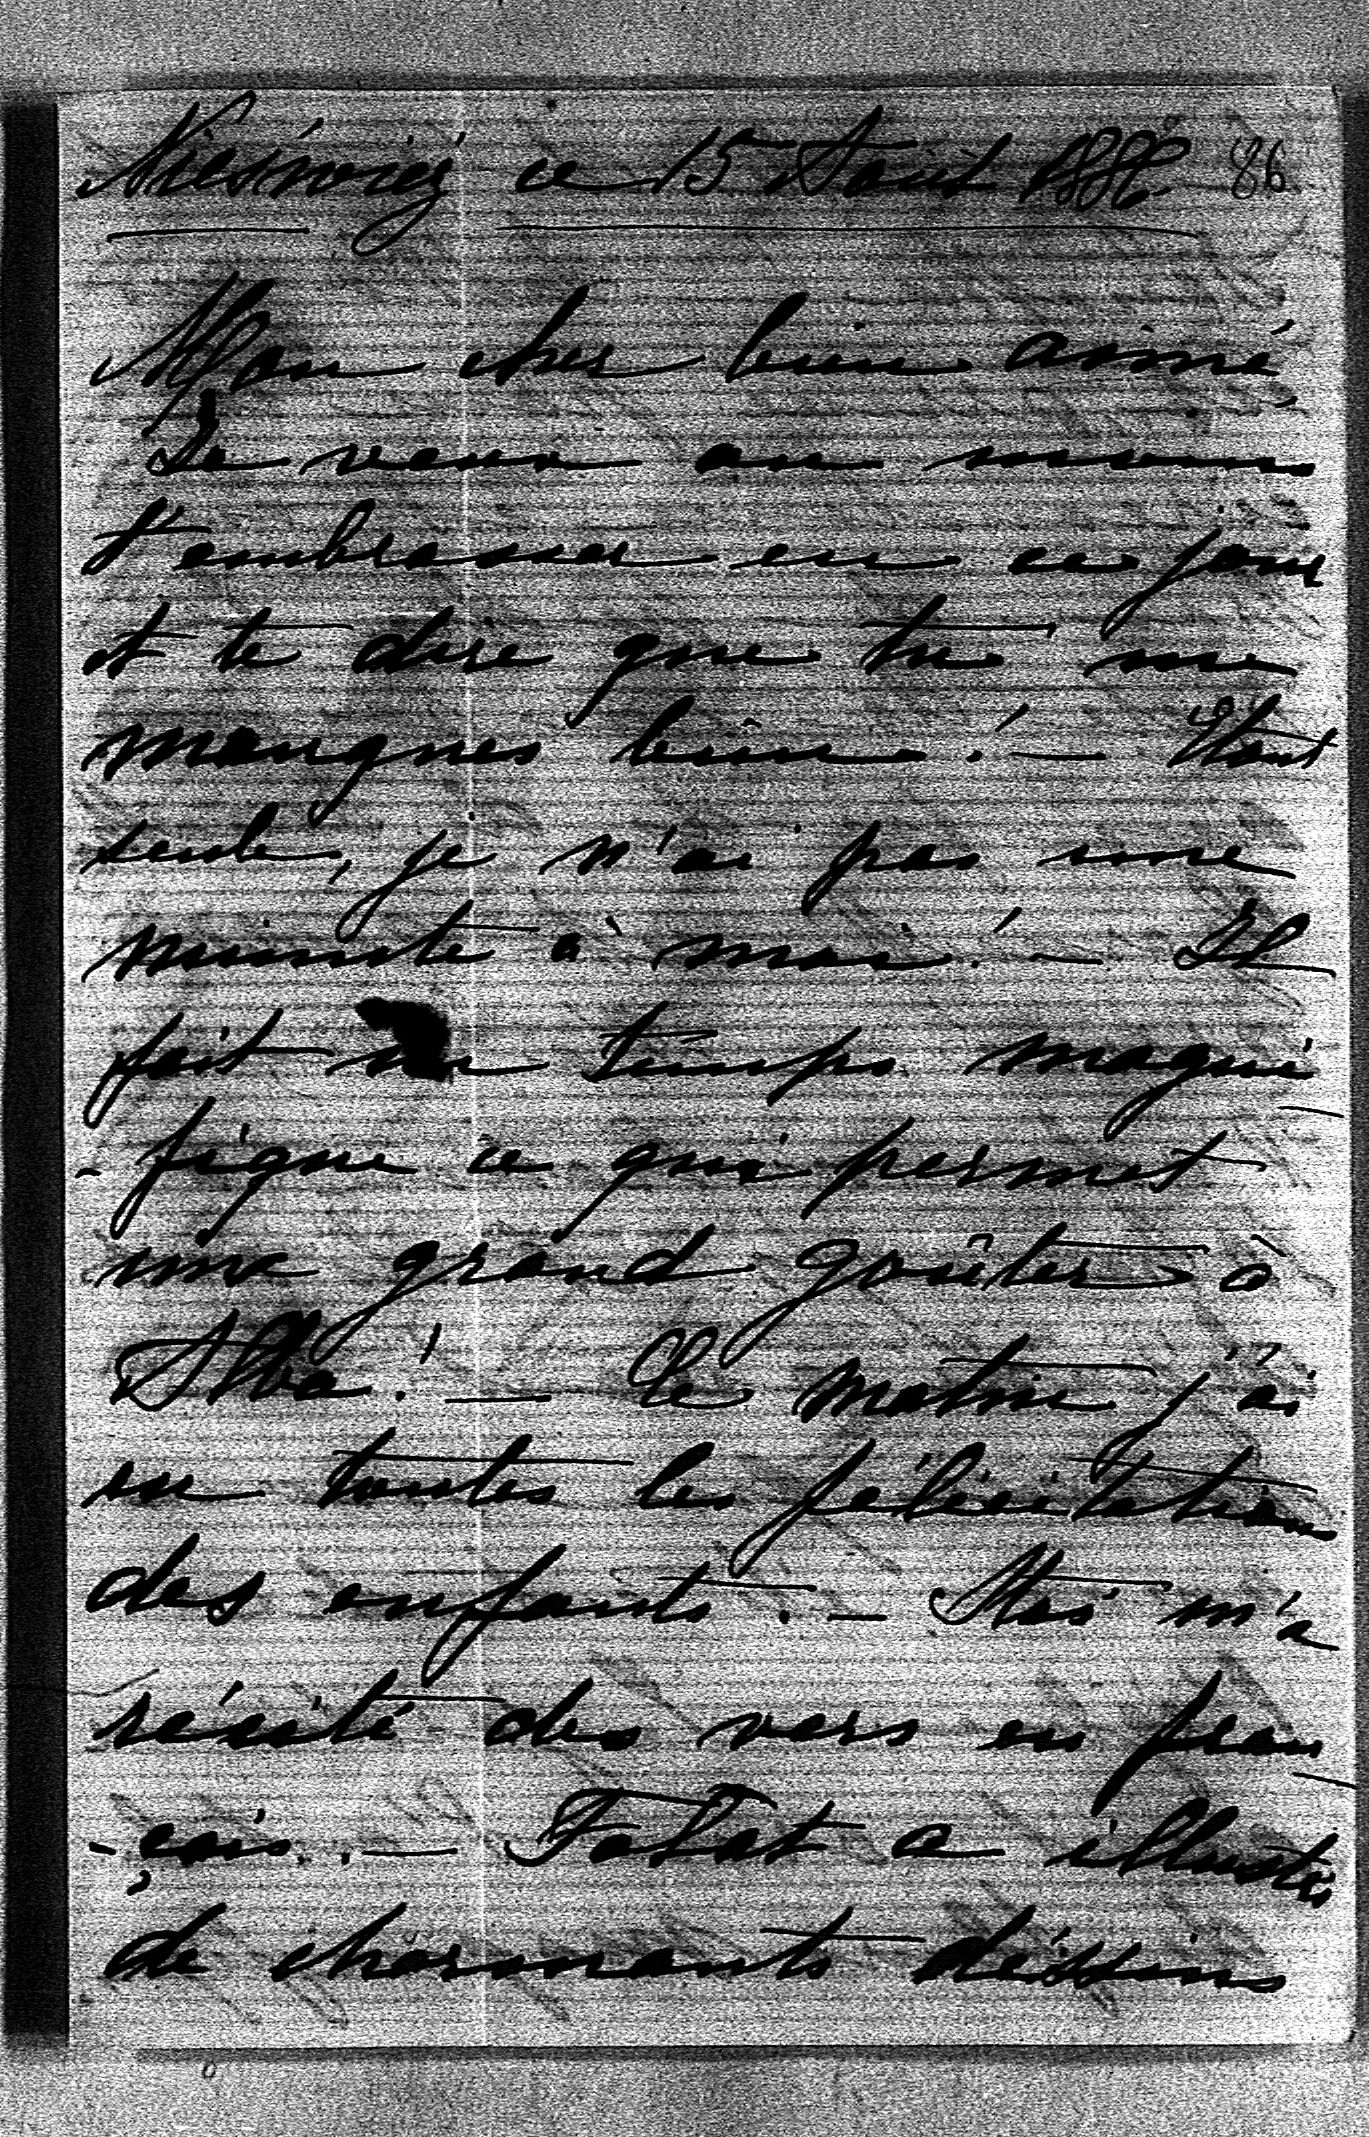 Nieśwież ce 15 Août 1886. 86
Mon cher bien aimé,
Je veux au moins
t'embrasser en ce jour
et te dire que tu me
manques bien! — Etant
seule, je n'ai pas une
minute à moi! — Il
fait un temps magni-
-fique ce qui permet
un grand goûter à
Alba! — Ce matin j'ai
eu toutes les félicitations
des enfants. — Staś m'a
récité des vers en fran-
-çais. — Fofat a illustré
de charmants dessins